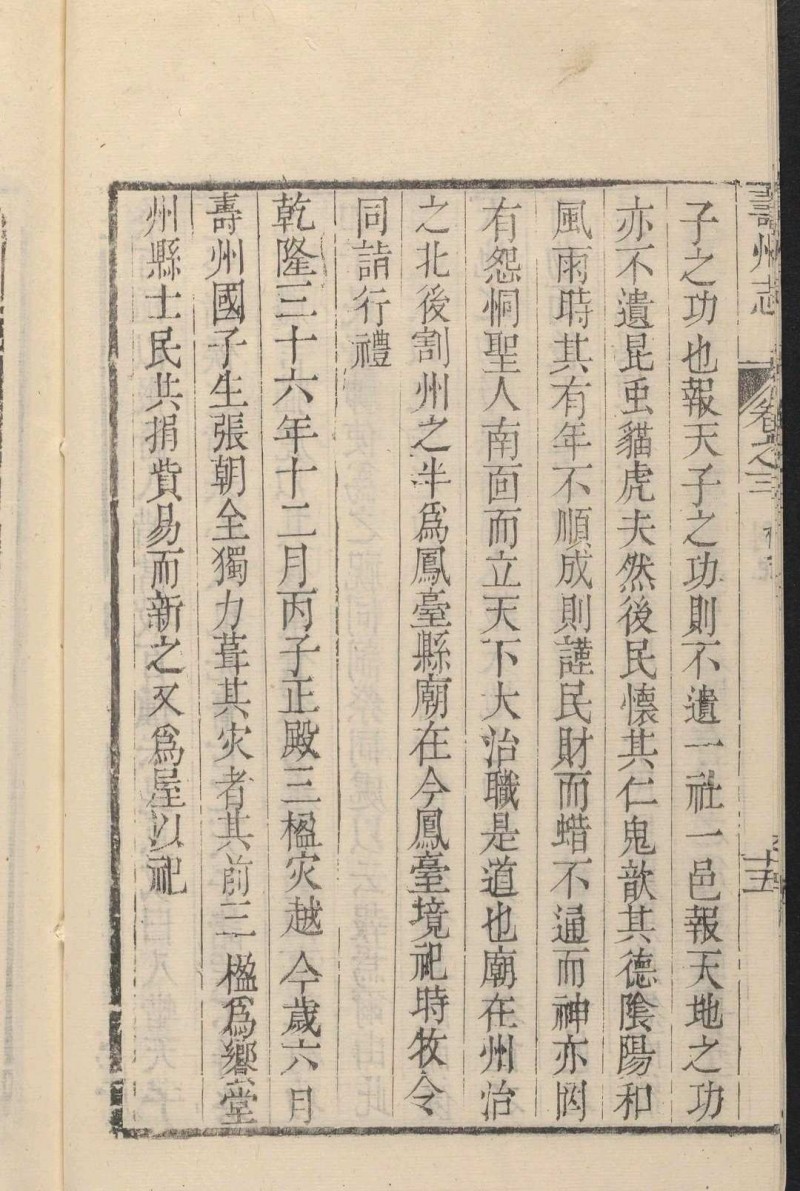 壽州志
卷之三
十五
子之功也報天子之功則不遺一社一邑報天地之功
亦不遺昆虫貓虎夫然後民懷其仁鬼歆其德陰陽和
風雨時其有年不順成則謹民財而蜡不通而神亦罔
有怨恫聖人南面而立天下大治職是道也廟在州治
之北後割州之半爲鳳臺縣廟在今鳳臺境祀時牧令
同詣行禮
乾隆三十六年十二月丙子正殿三楹灾越今歲六月
壽州國子生張朝全獨力葺其灾者其前三楹爲饗堂
州縣士民共捐貲易而新之又爲屋以祀